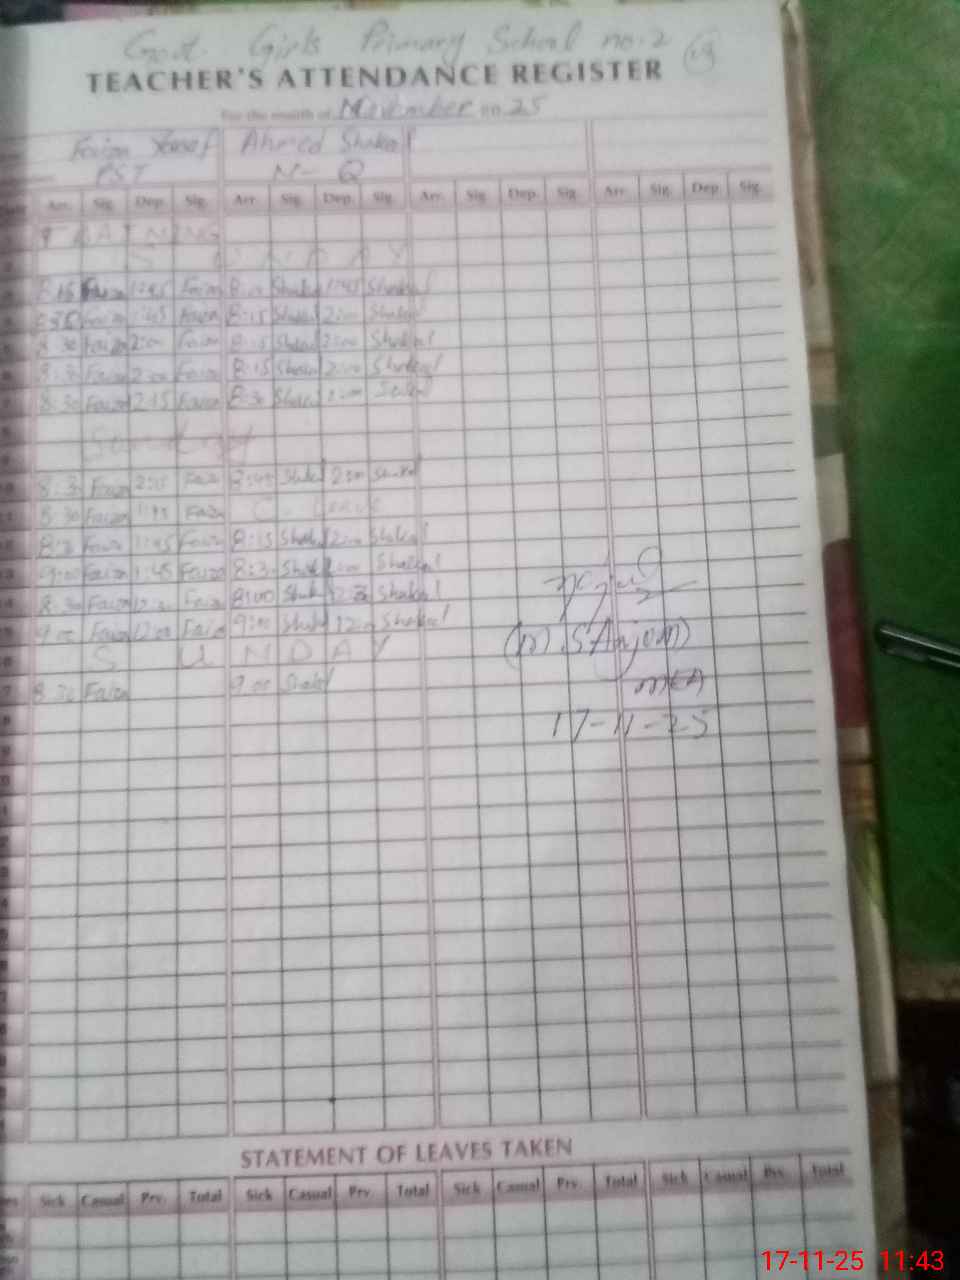 Govt. Girls Primary School no. 2
TEACHER'S ATTENDANCE REGISTER
For the month of November 25
Faiza Ahmed Shakeel
PST N- Q
Arr. Sig. Dep. Sig. Arr. Sig. Dep. Sig. Arr. Sig. Dep. Sig. Arr. Sig. Dep. Sig.
TRAINING
S U N D A Y
8:15 Faiza 1:45 Faiza Shakeel 1:45 Shakeel
Faiza 1:45 Faiza 8:15 Shakeel 2:00 Shakeel
8:30 Faiza 2:00 Faiza 8:15 Shakeel 2:00 Shakeel
8:30 Faiza 2:00 Faiza 8:15 Shakeel 2:00 Shakeel
8:30 Faiza 2:15 Faiza 8:30 Shakeel 2:00
8:30 Faiza 2:15 Faiza 8:45 Shakeel 2:00 Shakeel
8:30 Faiza 1:45 Faiza C. Leave
Faiza 1:45 Faiza 8:15 Shakeel 2:00 Shakeel
9:00 Faiza 1:45 Faiza 8:30 Shakeel 2:00 Shakeel
8:30 Faiza 12:30 Faiza 8:00 Shakeel 12:30 Shakeel
9:00 Faiza 12:00 Faiza 9:00 Shakeel 12:00 Shakeel
S U N D A Y
8:30 Faiza 9:00 Shakeel
(M. S Anjum)
MEA
17-11-25
STATEMENT OF LEAVES TAKEN
Sick Casual Prv. Total Sick Casual Prv. Total Sick Casual Prv. Total Sick Casual Prv. Total
17-11-25 11:43